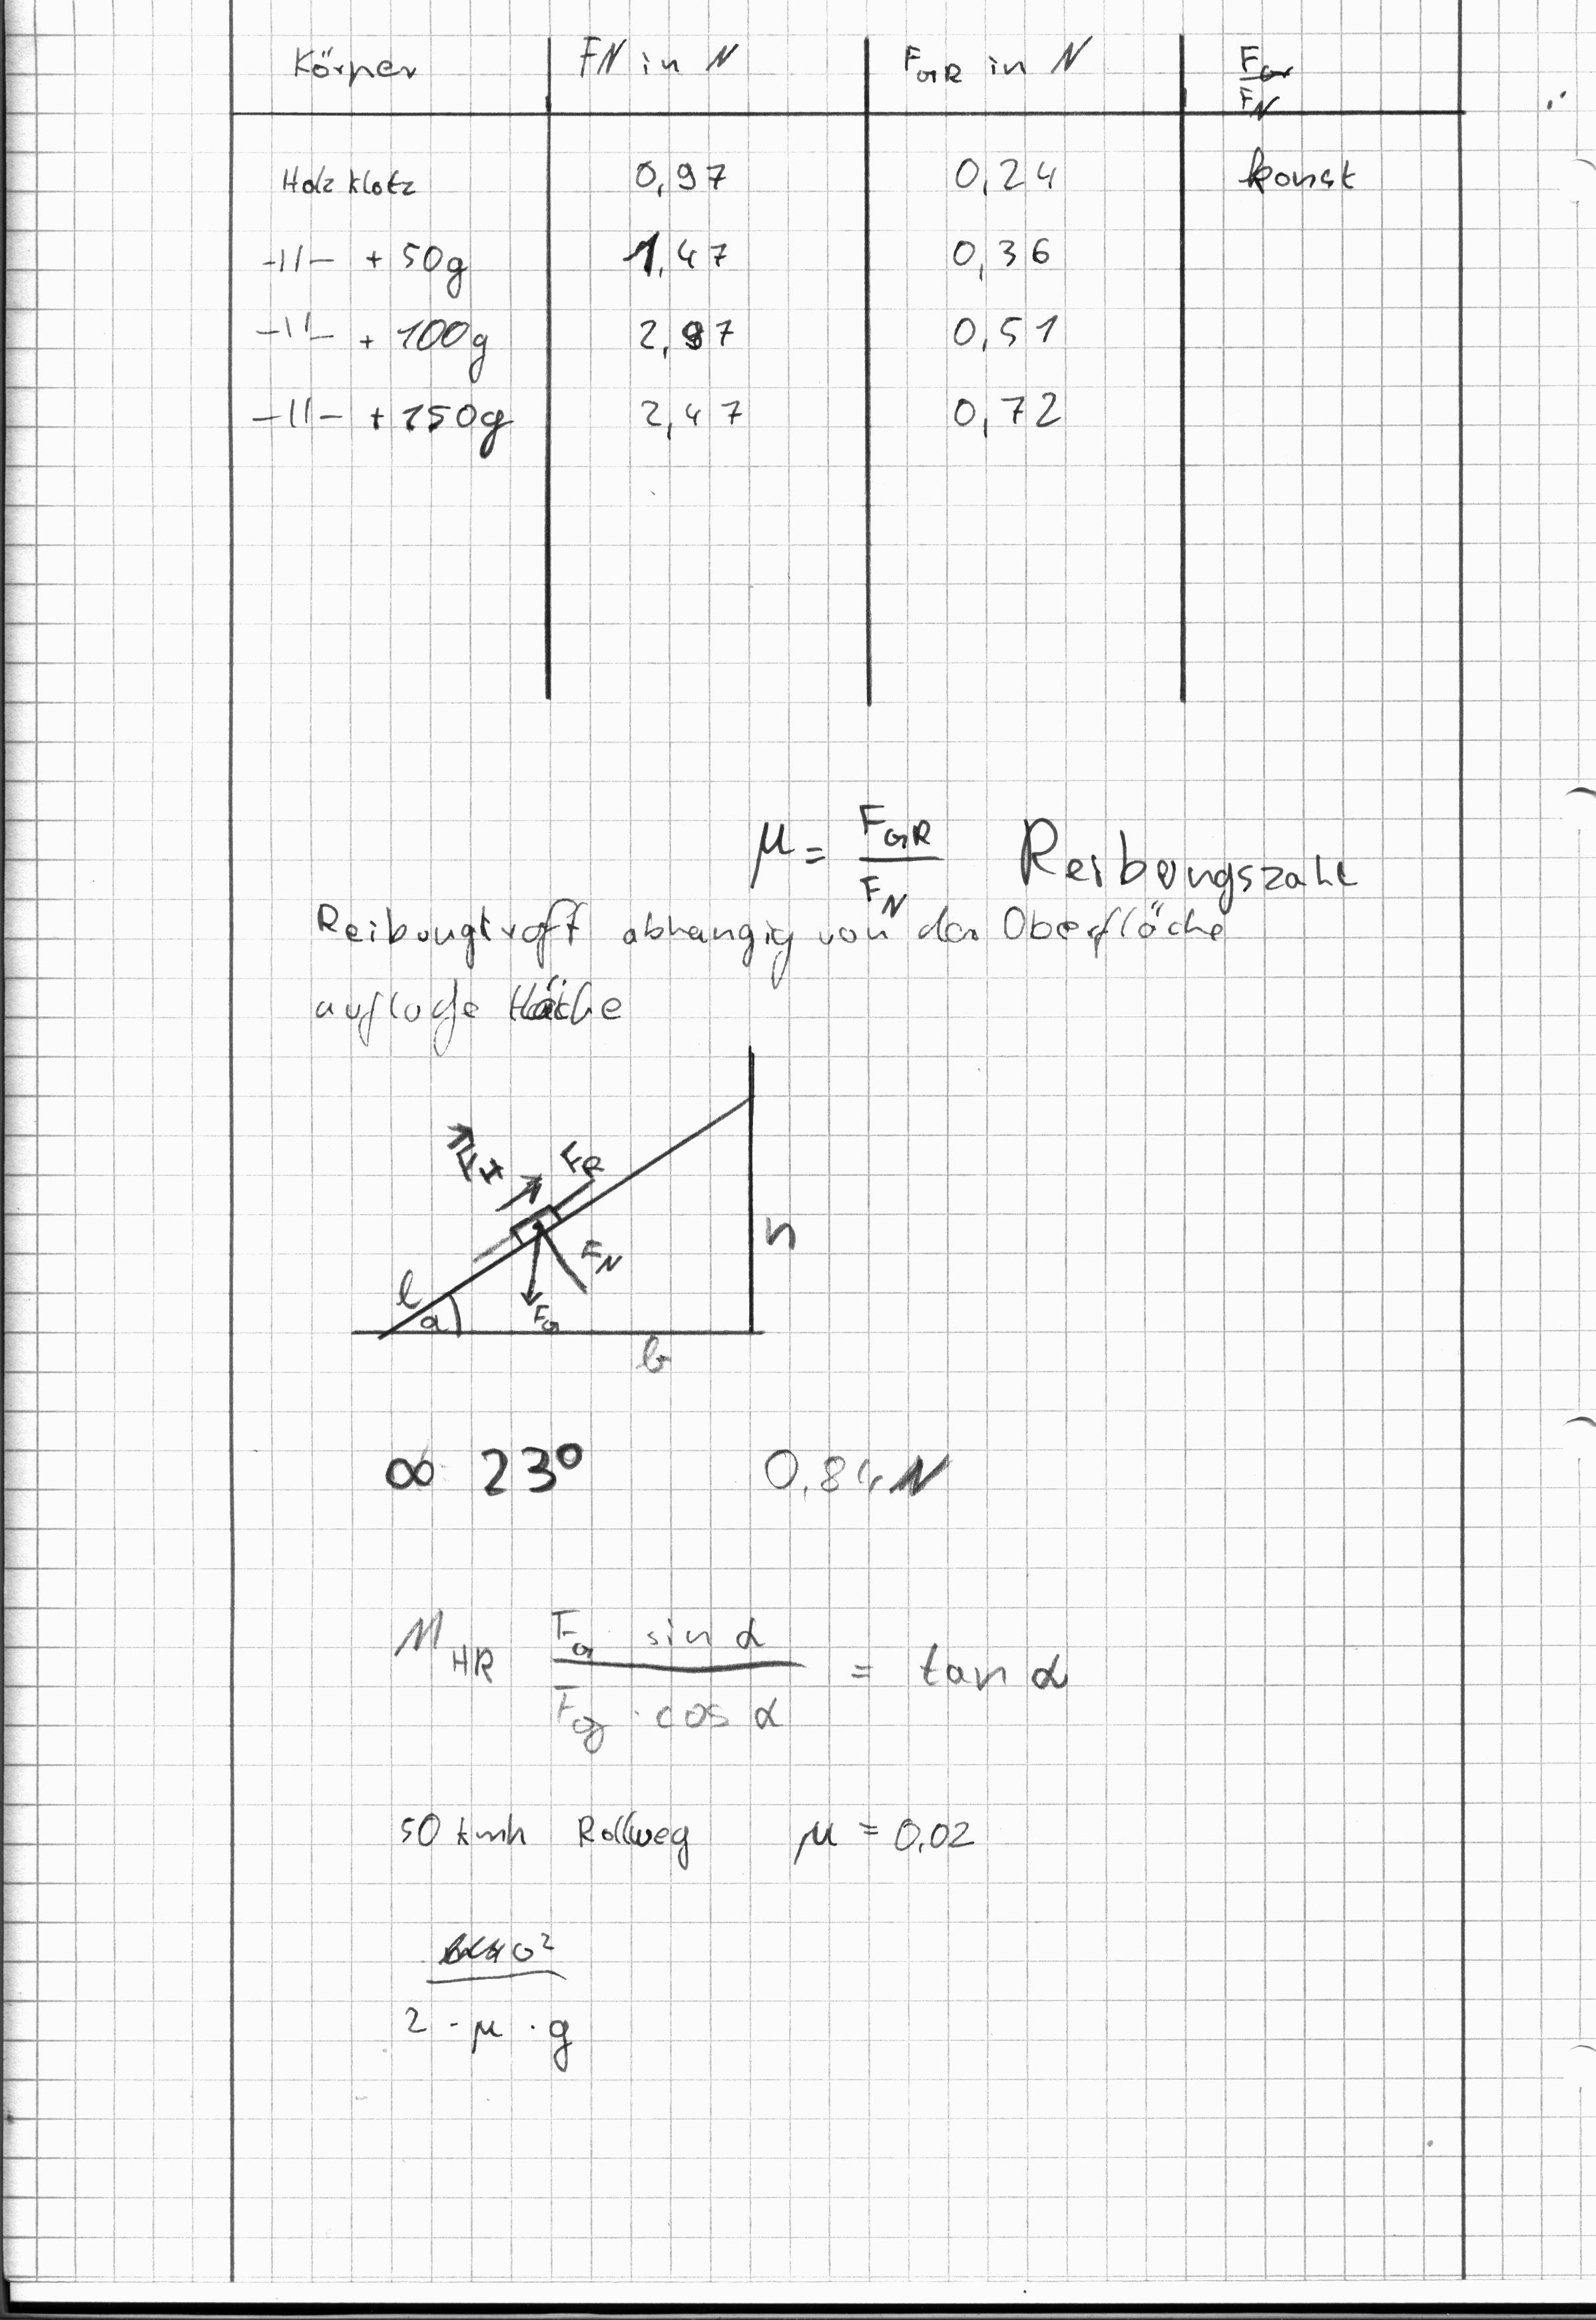 Körper FN in N F_GR in N F_GR/F_N
Holzklotz 0,97 0,24 konst
-||- + 50g 1,47 0,36
-||- + 100g 2,97 0,51
-||- + 150g 2,47 0,72
μ = F_GR/F_N Reibungszahl
Reibungkraft abhängig von der Oberfläche
auflage
F_H F_R
h
F_N
l α F_G
b
α 23° 0,84N
μ_HR F_G sin α / F_G · cos α = tan α
50 kmh Rollweg μ = 0,02
2 · μ · g